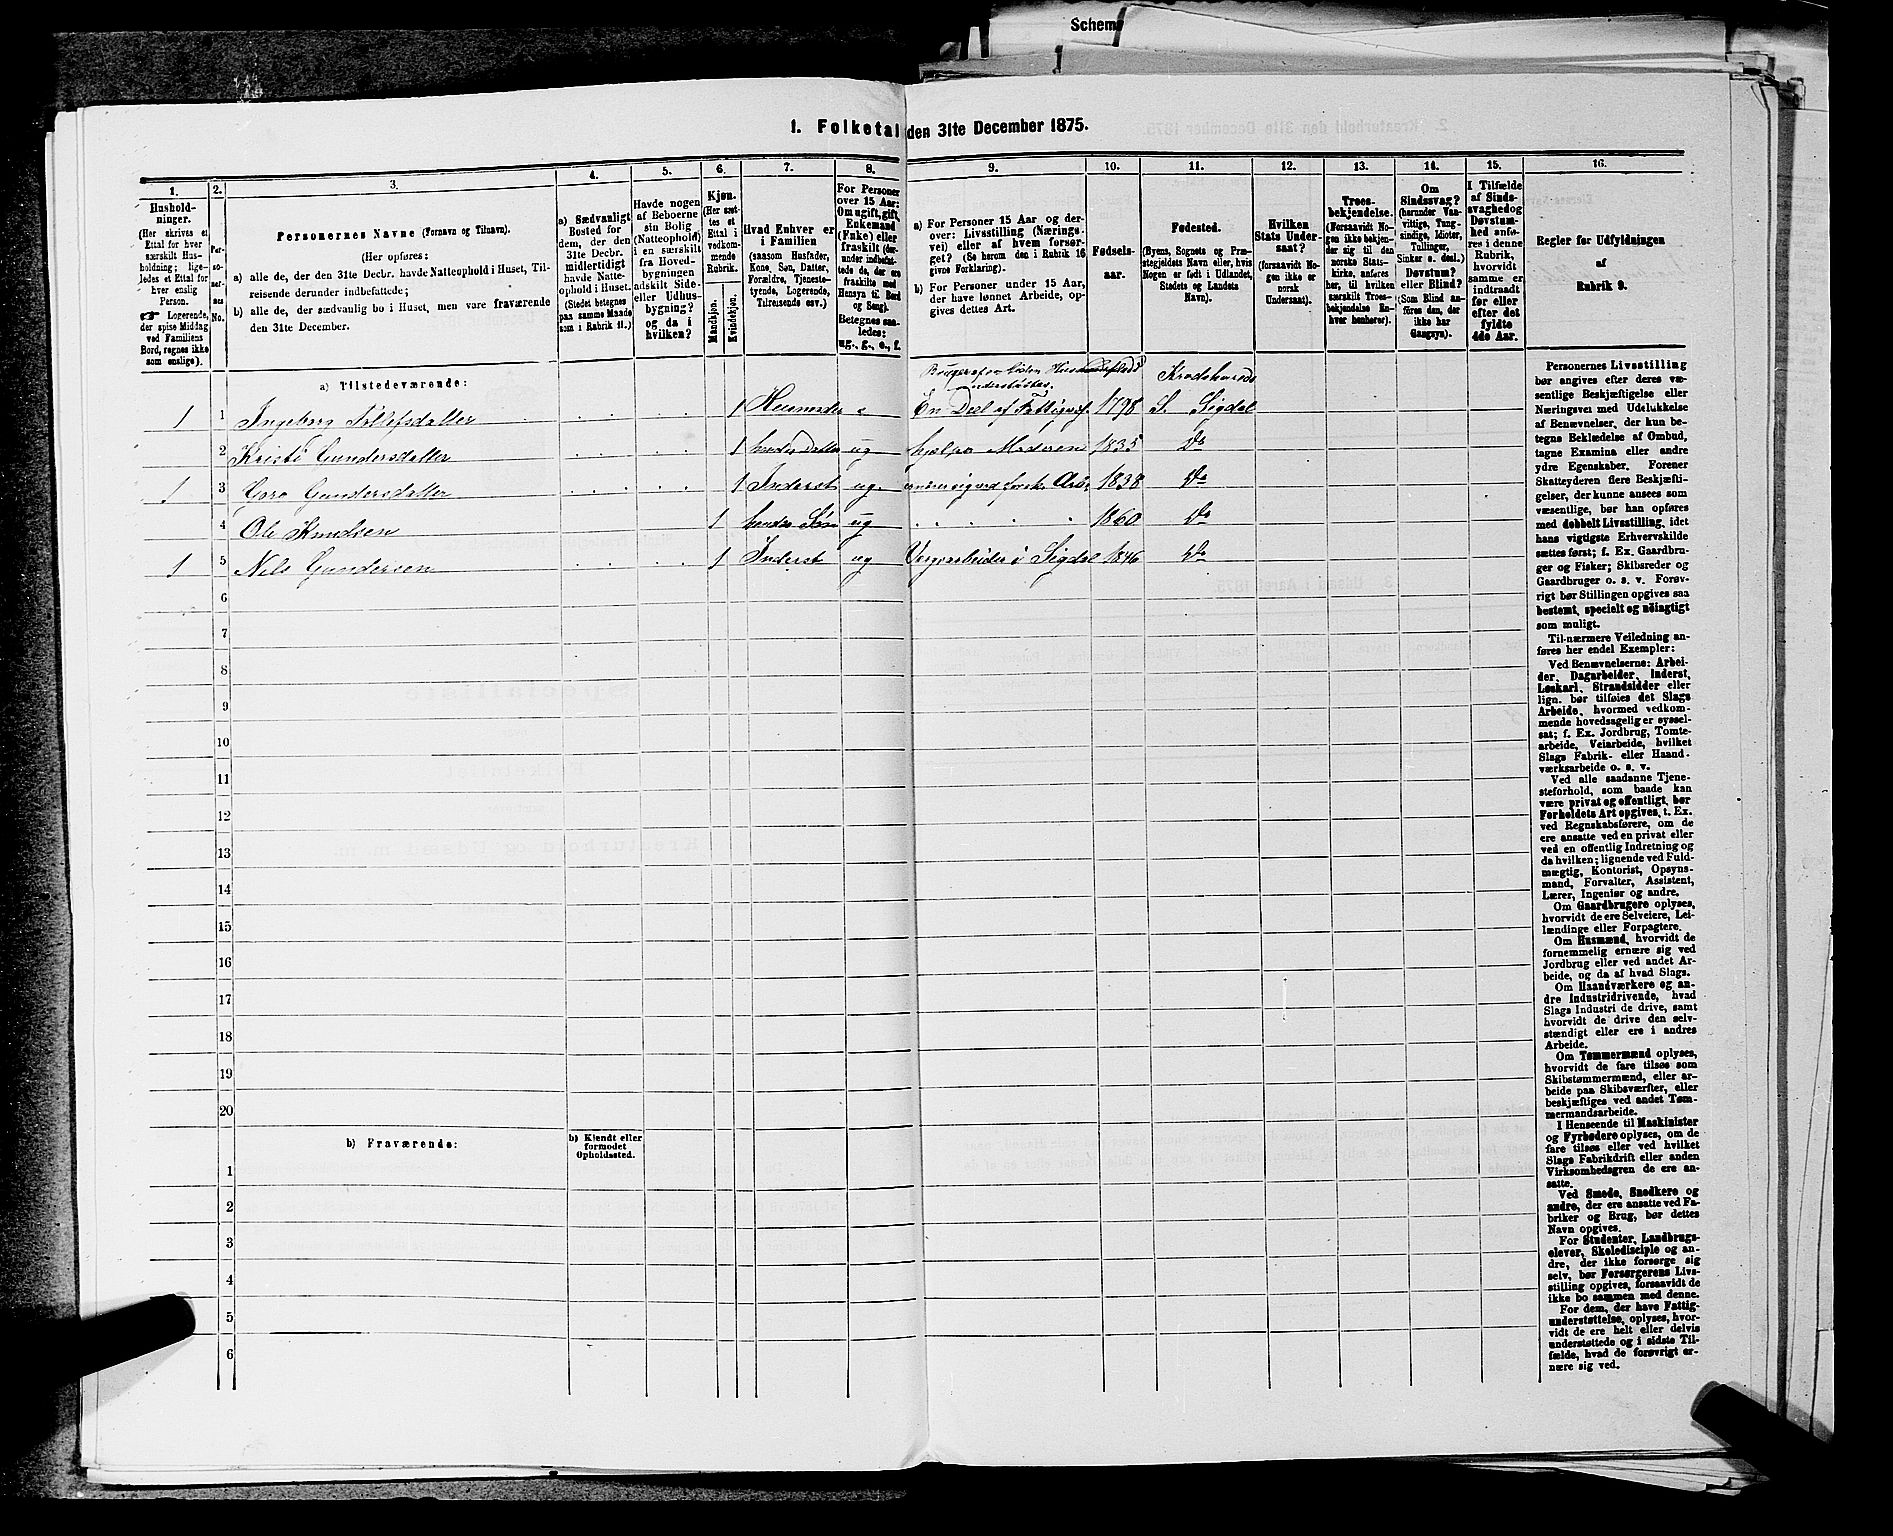 Schem
1. Folketal den 31te December 1875.
1.
Hushold-
ninger.
(Her skrives et
Ettal for hver
særskilt Hus-
holdning; lige-
ledes et Ettal for
hver enslig
Person.
☛ Logerende,
der spise Middag
ved Familiens
Bord, regnes ikke
som enslige).
2.
Per-
so-
ner-
nes
No.
3.
Personernes Navne (Fornavn og Tilnavn).
(Her opføres:
a) alle de, der den 31te Decbr. havde Natteophold i Huset, Til-
reisende derunder indbefattede;
b) alle de, der sædvanlig bo i Huset, men vare fraværende
den 31te December.
4.
a) Sædvanligt
Bosted for
dem, der den
31te Decbr.
midlertidigt
havde Natte-
ophold i Huset.
(Stedet betegnes
paa samme Maade
som i Rubrik 11.)
5.
Havde nogen
af Beboerne
sin Bolig
(Natteophold)
i en særskilt
fra Hoved-
bygningen
adskilt Side-
eller Udhus-
bygning?
og da i
hvilken?
6.
Kjøn.
(Her sæt-
tes et
Ettal i
vedkom-
mende
Rubrik.
Mandkjøn.
Kvindekjøn.
7.
Hvad Enhver er
i Familien
(saasom Husfader,
Kone, Søn, Datter,
Forældre, Tjeneste-
tyende, Logerende,
Tilreisende osv.)
8.
For Personer
over 15 Aar:
Om ugift, gift,
Enkemand
(Enke) eller
fraskilt (der-
under indbefat-
tede de, der ere
fraskilte med
Hensyn til Bord
og Seng).
Betegnes saa-
ledes:
ug., g., e., f.
9.
a) For Personer 15 Aar og der-
over: Livsstilling (Nærings-
vei) eller af hvem forsør-
get? (Se herom den i Rubrik 16
givne Forklaring).
b) For Personer under 15 Aar,
der have lønnet Arbeide, op-
gives dettes Art.
10.
Fødsels-
aar.
11.
Fødested.
(Byens, Sognets og Præ-
stegjeldets Navn eller, hvis
Nogen er født i Udlandet,
Stedets og Landets
Navn).
12.
Hvilken
Stats Under-
saat?
(forsaavidt No-
gen ikke er
norsk
Undersaat).
13.
Troes-
bekjendelse.
(Forsaavidt No-
gen ikke bekjen-
der sig til den
norske Stats-
kirke, anføres
her, til hvilken
særskilt Troes-
bekjendelse En-
hver henhører).
14.
Om
Sindssvag?
(herunder Van-
vittige, Tung-
sindige, Idioter,
Tullinger,
Sinker o. desl.)
Døvstum?
eller Blind?
(Som Blind an-
føres den, der
ikke har
Gangsyn).
15.
I Tilfælde
af Sinds-
svaghed og
Døvstum-
hed anfø-
res i denne
Rubrik,
hvorvidt
samme er
indtraadt
før eller
efter det
fyldte
4de Aar.
16.
Regler for Udfyldningen
af
Rubrik 9.
a) Tilstedeværende:
Kradsherreds
1 1 Ingeborg Tollefsdatter 1 Husmoder e En Deel af Fattigv. 1798 S. Sigdal
2 Kristi Gundersdatter 1 hendes Datter ug hjælper Moderen 1835 Do
1 3 Goro Gundersdatter 1 Inderst ug. 1838 Do
4 Ole Knudsen 1 hendes Søn ug 1860 Do
1 5 Nils Gundersen 1 Inderst ug Veiarbeider i Sigdal 1846 Do
6
7
8
9
10
11
12
13
14
15
16
17
18
19
20
b) Fraværende:
b) Kjendt eller
formodet
Opholdssted.
1
2
3
4
5
6
Personernes Livsstilling
bør angives efter deres væ-
sentlige Beskjæftigelse eller
Næringsvei med Udelukkelse
af Benævnelser, der kun be-
tegne Beklædelse af Ombud,
tagne Examina eller andre
ydre Egenskaber. Forener
Skatteyderen flere Beskjæfti-
gelser, der kunne ansees som
væsentlige, bør han opføres
med dobbelt Livsstilling, idet
hans vigtigste Erhvervskilde
sættes først; f. Ex. Gaardbru-
ger og Fisker; Skibsreder og
Gaardbruger o. s. v. Forøv-
rigt bør Stillingen opgives saa
bestemt, specielt og nøiagtigt
som muligt.
Til nærmere Veiledning an-
føres her endel Exempler:
Ved Benævnelserne: Arbei-
der, Dagarbeider, Inderst,
Løskarl, Strandsidder eller
lign. bør tilføies det Slags
Arbeide, hvormed vedkom-
mende hovedsagelig er syssel-
sat; f. Ex. Jordbrug, Tomte-
arbeide, Veiarbeide, hvilket
Slags Fabrik- eller Haand-
værksarbeide o. s. v.
Ved alle saadanne Tjene-
steforhold, som baade kan
være privat og offentligt, bør
Forholdets Art opgives, t. Ex.
ved Regnskabsførere, om de
ere ansatte ved en privat eller
ved en offentlig Indretning og
da hvilken; lignende ved Fuld-
mægtig, Kontorist, Opsyns-
mand, Forvalter, Assistent,
Lærer, Ingeniør og andre.
Om Gaardbrugere oplyses,
hvorvidt de ere Selveiere, Lei-
lændinge eller Forpagtere.
Om Husmænd, hvorvidt de
fornemmelig ernære sig ved
Jordbrug eller ved andet Ar-
beide, og da af hvad Slags.
Om Haandværkere og an-
dre Industridrivende, hvad
Slags Industri de drive, samt
hvorvidt de drive den selv-
stændigt eller ere i andres
Arbeide.
Om Tømmermænd oplyses,
hvorvidt de fare tilsøs som
Skibstømmermænd, eller ar-
beide paa Skibsværfter, eller
beskjæftiges ved andet Tøm-
mermandsarbeide.
I Henseende til Maskinister
og Fyrbødere oplyses, om de
fare tilsøs eller ved hvilket
Slags Fabrikdrift eller anden
Virksomhedsgren de ere an-
satte.
Ved Smede, Snedkere og
andre, der ere ansatte ved Fa-
briker og Brug, bør dettes
Navn opgives.
For Studenter, Landbrugs-
elever, Skoledisciple og an-
dre, der ikke forsørge sig
selv, bør Forsørgerens Livs-
stilling opgives, forsaavidt de
ikke bo sammen med denne.
For dem, der have Fattig-
understøttelse, oplyses, hvor-
vidt de ere helt eller delvis
understøttede og i sidste Til-
fælde, hvad de forøvrigt er-
nære sig ved.